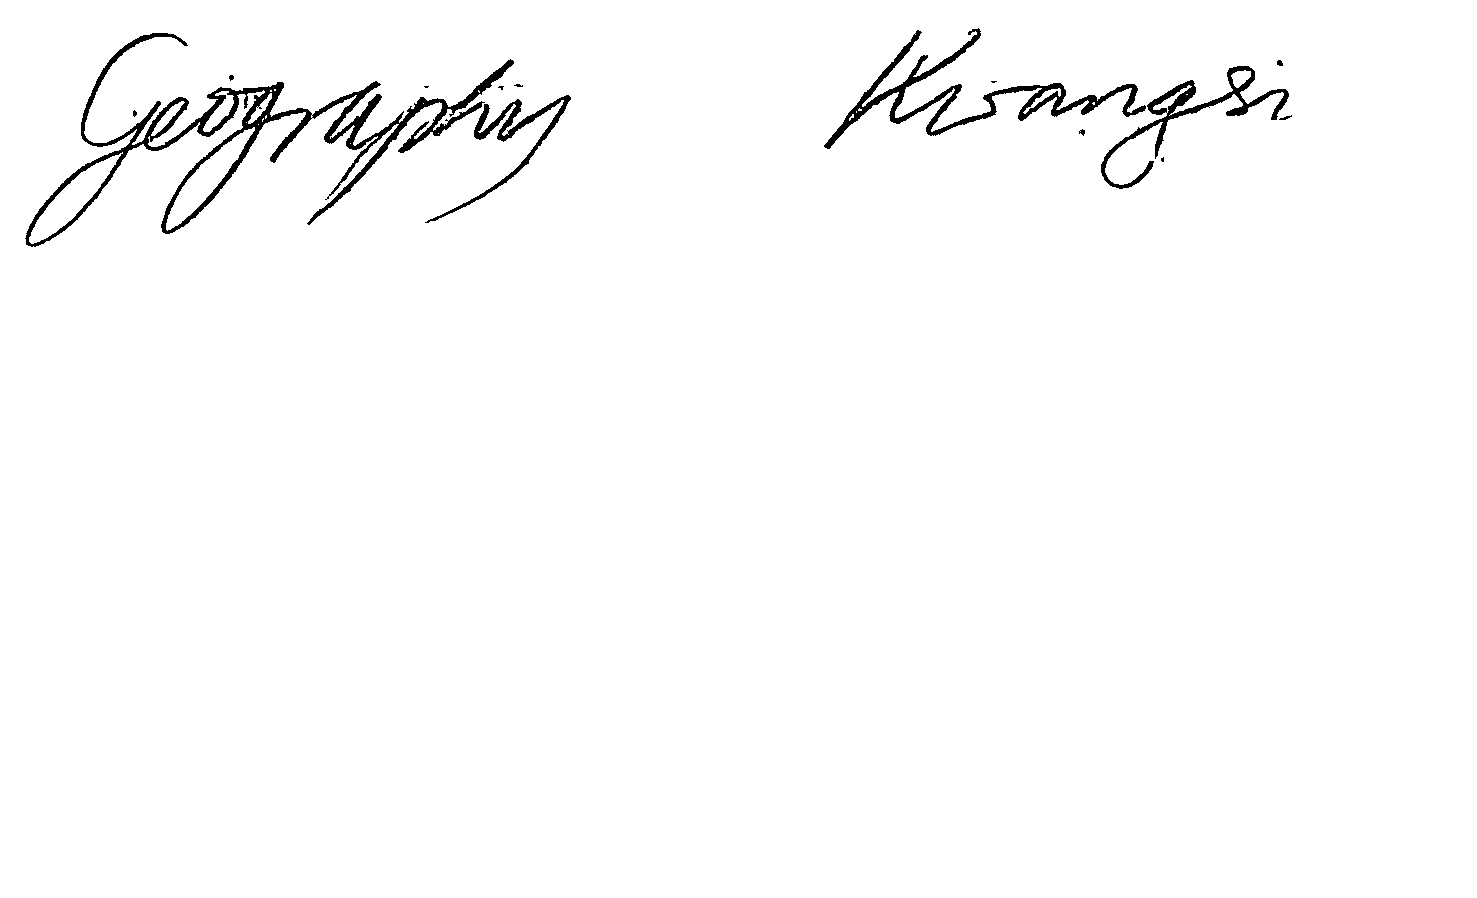 Geography Kwangsi